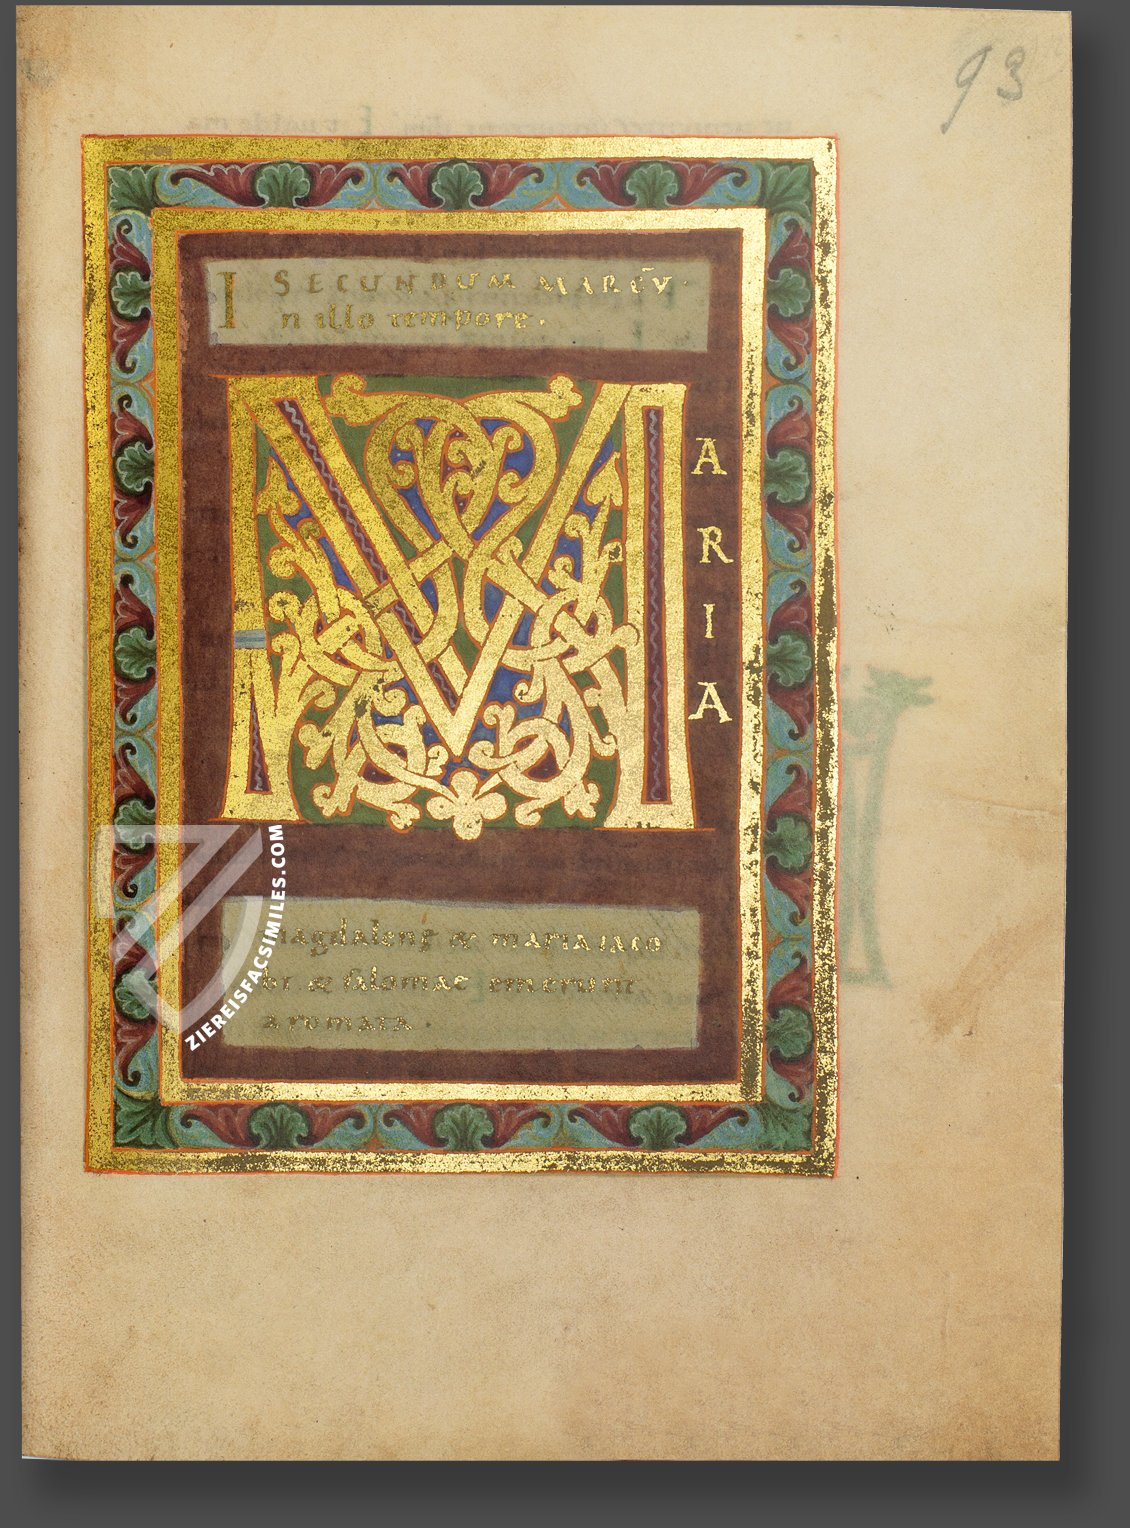 93
SECUNDUM MARCŪ·
In illo tempore.
M
A
R
I
A
magdalene & maria iaco
bi. & salomae emerunt
aromata.
ZIEREISFACSIMILES.COM